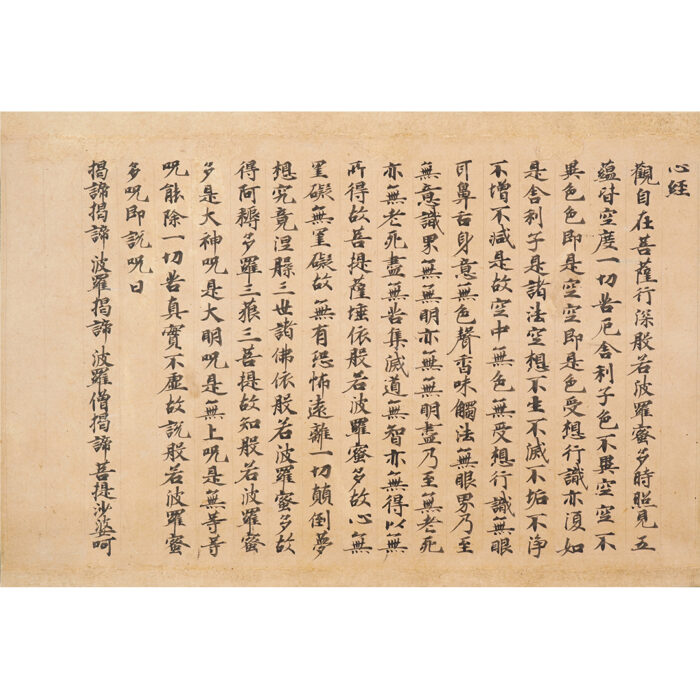 心経
觀自在菩薩行深般若波羅蜜多時照見五
蘊皆空度一切苦厄舍利子色不異空空不
異色色即是空空即是色受想行識亦須如
是舍利子是諸法空想不生不滅不垢不淨
不增不減是故空中無色無受想行識無眼
耳鼻舌身意無色聲香味觸法無眼界乃至
無意識界無無明亦無無明盡乃至無老死
亦無老死盡無苦集滅道無智亦無得以無
所得故菩提薩埵依般若波羅蜜多故心無
罣礙無罣礙故無有恐怖遠離一切顛倒夢
想究竟涅槃三世諸佛依般若波羅蜜多故
得阿耨多羅三藐三菩提故知般若波羅蜜
多是大神呪是大明呪是無上呪是無等等
呪能除一切苦真實不虛故說般若波羅蜜
多呪即說呪曰
揭諦揭諦波羅揭諦波羅僧揭諦菩提沙婆呵